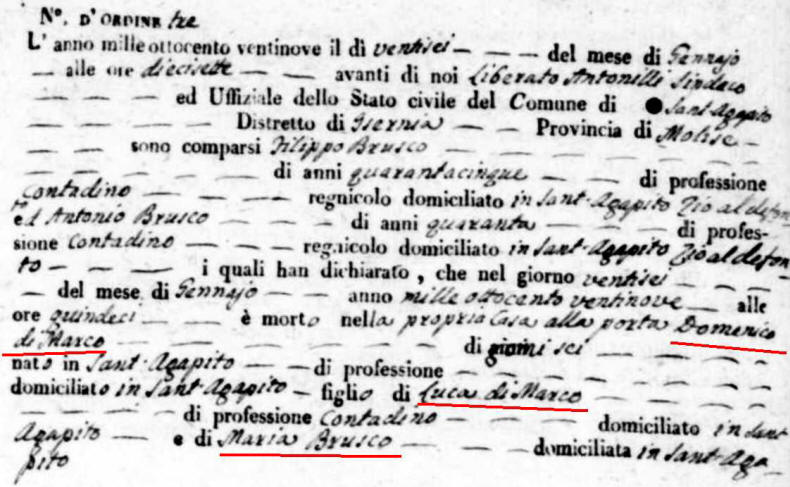 Nº. D'ORDINE tre
L'anno mille ottocento ventinove il dì ventisei — — — del mese di Gennajo
— alle ore diecisette — — — avanti di noi Liberato Antonilli Sindaco
— — — — ed Uffiziale dello Stato civile del Comune di Sant'Agapito
— — — — — Distretto di Isernia — — Provincia di Molise —
— — — — sono comparsi Filippo Brusco — — — — — — — —
— — — — — — — di anni quarantacinque — — — di professione
Contadino — — — — — regnicolo domiciliato in Sant'Agapito Zio al defon
to ed Antonio Brusco — — — — di anni quaranta — — — — di profes-
sione Contadino — — — — regnicolo domiciliato in Sant'Agapito Zio al defon
to — — — — i quali han dichiarato, che nel giorno ventisei — —
— del mese di Gennajo — — — anno mille ottocento ventinove — alle
ore quindeci — — — è morto nella propria Casa alla porta Domenico
di Marco — — — — — — — — di giorni sei — — — — —
nato in Sant'Agapito — — — di professione — — — — — —
domiciliato in Sant'Agapito — figlio di Luca di Marco — — — —
— — — — — di professione Contadino — — — — domiciliato in Sant
Agapito — — e di Maria Brusco — — — — domiciliata in Sant'Aga
pito